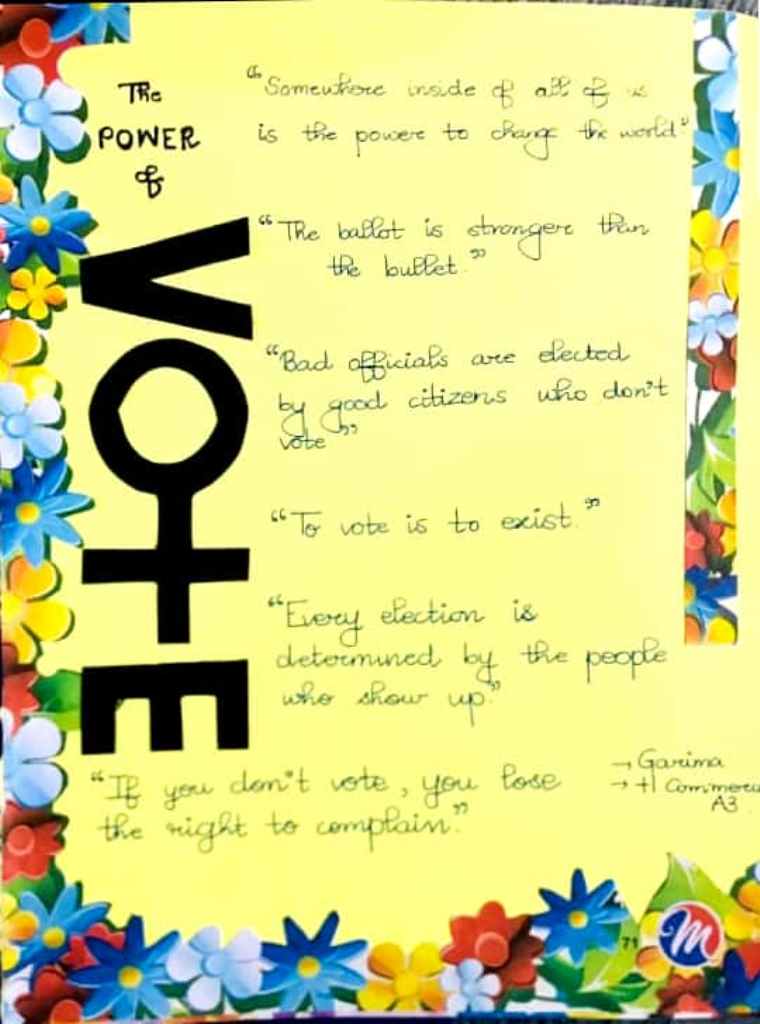 The
POWER
of
VOTE
"Somewhere inside of all of us
is the power to change the world"
"The ballot is stronger than
the bullet."
"Bad officials are elected
by good citizens who don't
vote"
"To vote is to exist."
"Every election is
determined by the people
who show up."
"If you don't vote, you lose
the right to complain."
→ Garima
→ +1 Commerce
A3
71
M